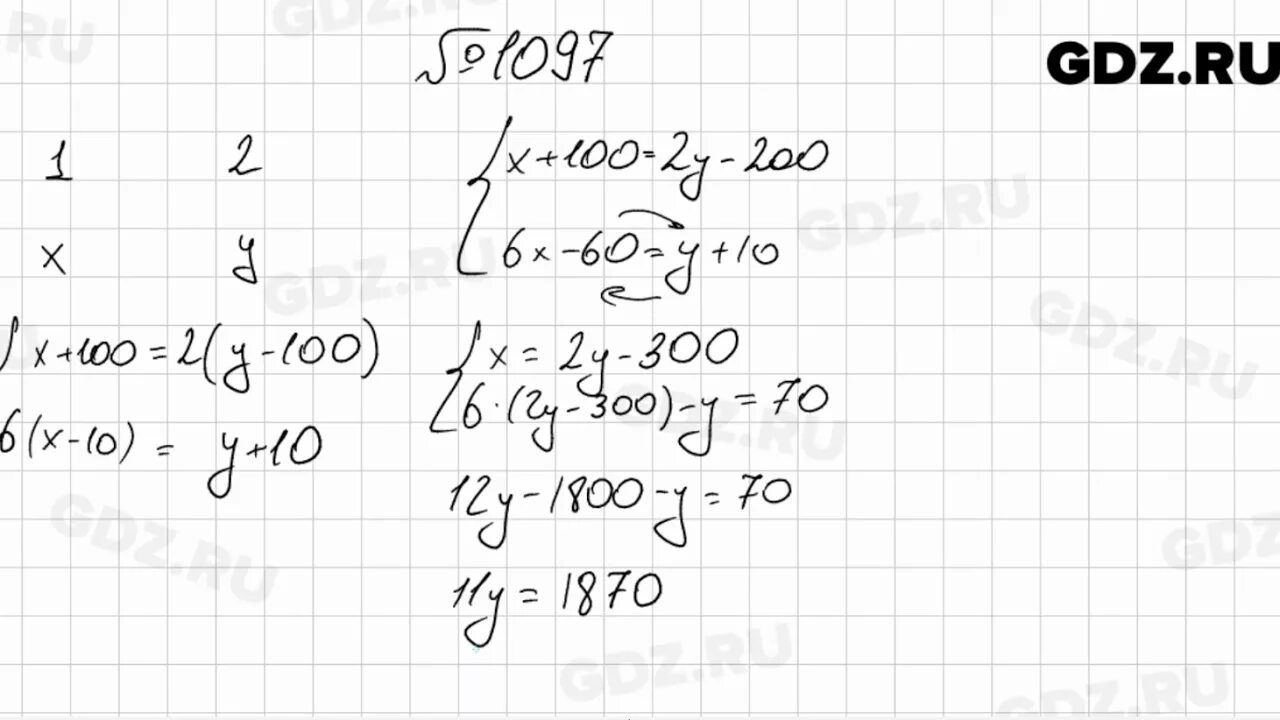 №1097
GDZ.RU
1 2
x y
x+100=2(y-100)
6(x-10) = y+10
x+100=2y-200
6x-60=y+10
x = 2y-300
6·(2y-300)-y=70
12y-1800-y=70
11y=1870